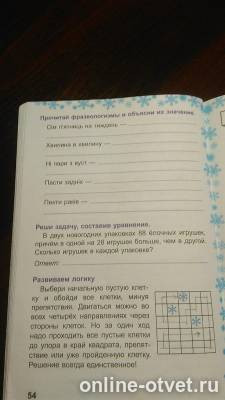 Прочитай фразеологизмы и объясни их значение.
Сім п'ятниць на тиждень —
Хвилина в хвилину —
Ні пари з вуст —
Пасти задніх —
Пекти раків —
Реши задачу, составив уравнение.
В двух новогодних упаковках 88 ёлочных игрушек,
причём в одной на 28 игрушек больше, чем в другой.
Сколько игрушек в каждой упаковке?
Ответ:
Развиваем логику
Выбери начальную пустую клет-
ку и обойди все клетки, минуя
препятствия. Двигаться можно во
всех четырёх направлениях через
стороны клеток. Но за один ход
надо проходить все пустые клетки
до упора в край квадрата, препят-
ствие или уже пройденную клетку.
Решение всегда единственное!
54
online-otvet.ru